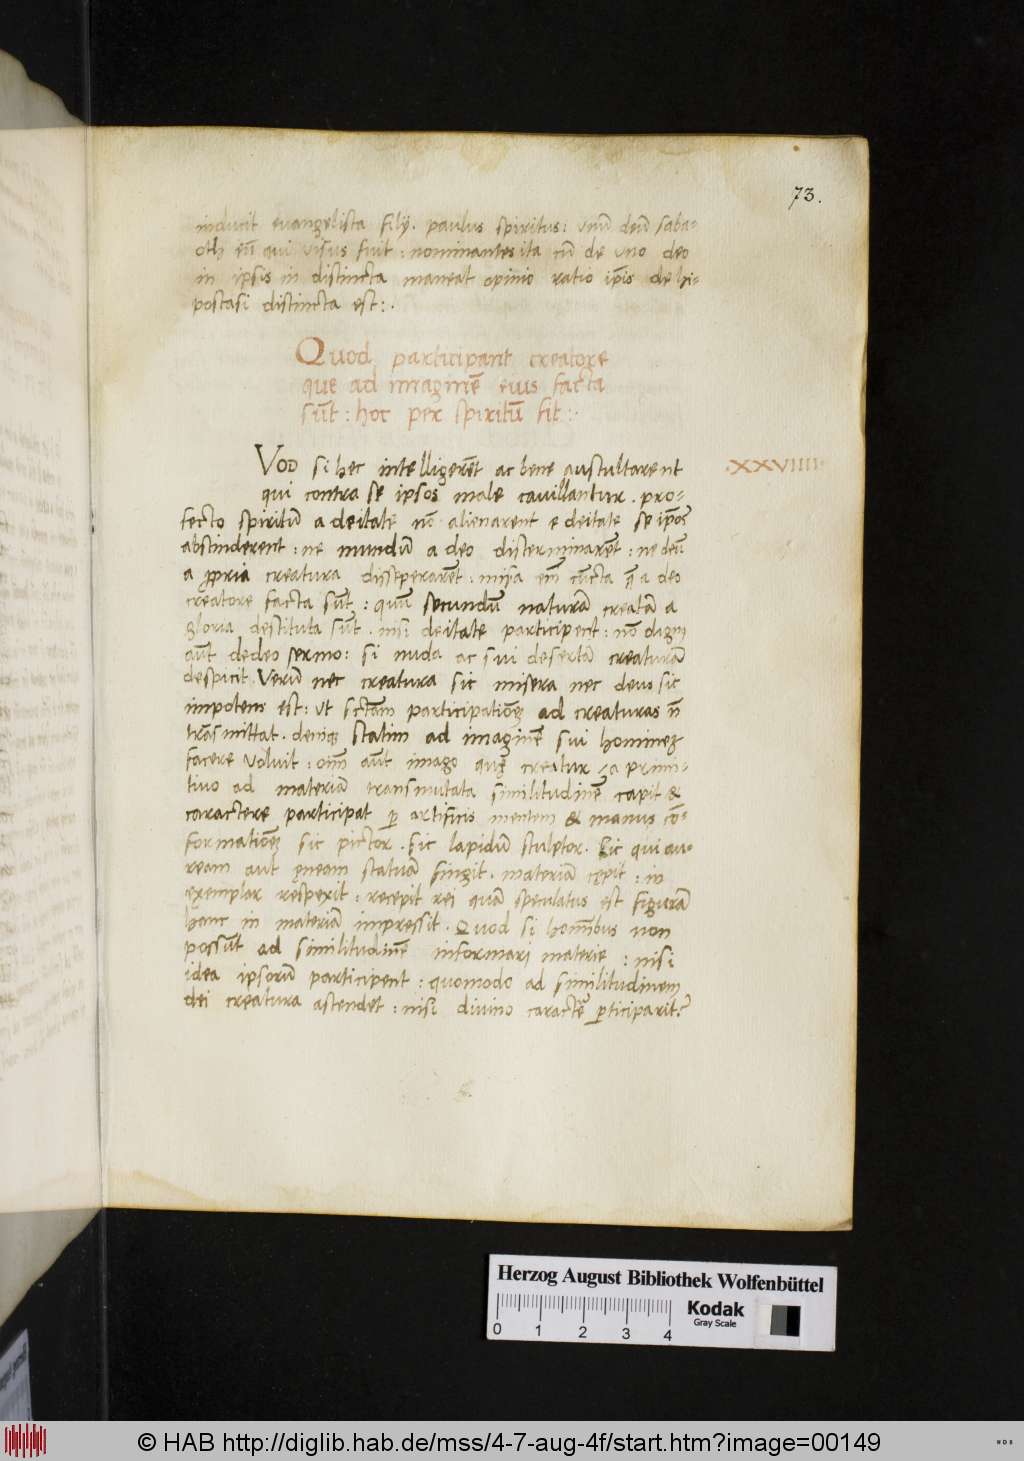 73.
inducit evangelista filij. paulus spiritus: unū deū saba-
oth eū qui visus fuit: nominantes ita cū de uno deo
in ipsis indistincta maneat opinio ratio ip̄is de hi-
postasi distincta est:.
Quod participant creatore
que ad imaginē eius facta
sūt: hoc per spiritū fit:.
.XXVIIII.
VOD si hec intelligerēt ac bene austultarent
qui contra se ipsos male cavillantur. pro-
fecto spiritū a deitate nō alienarent e deitate se ip̄os
abstinderent: ne mundū a deo disterminarēt: ne deū
a ꝓpria creatura disseperarēt: misa em̄ cūcta q̄ a deo
creatore facta sūt: quū secundū naturā creatā a
gloria destituta sūt. nisi deitate participent: nō digni
aūt de deo sermo: si nuda ac sui desertā creaturā
despicit. Verū nec creatura sic misera nec deus sic
impotens est: ut sctām participationē ad creaturas n̄
trāsmittat. deniq statim ad imaginē sui hominez
facere voluit: om̄ aūt imago quę creatur a primi-
tivo ad materiā transmutata similitudinē capit &
caractere participat ꝑ artificis mentem & manus cō-
formationē sic pictor. sic lapidū sculptor. Sic qui au-
ream aut ęneam statuā fingit. materiā cępit: in
exemplar respexit: recepit rei quā speculatus est figurā
hanc in materiā impressit. Quod si hominibus non
possūt ad similitudinē informari materie: nisi
idea ipsorū participent: quomodo ad similitudinem
dei creatura astendet: nisi divino caractē ꝑticiparit?
Herzog August Bibliothek Wolfenbüttel
0 1 2 3 4
Kodak
Gray Scale
© HAB http://diglib.hab.de/mss/4-7-aug-4f/start.htm?image=00149